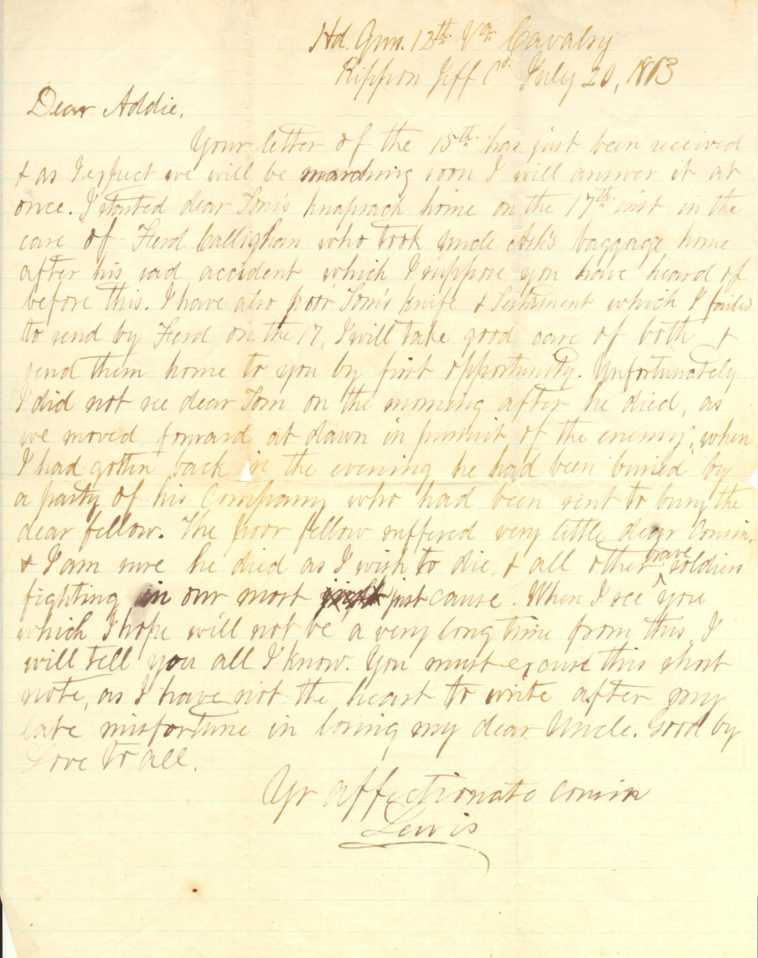 Hd. Qrs. 12th Va Cavalry
Rippon Jeff Co. July 20, 1863
Dear Addie,
Your letter of the 15th has just been received
& as I expect we will be marching soon I will answer it at
once. I started dear Tom's knapsack home on the 17th inst in the
care of Ferd Callighan who took Uncle Ash's baggage home
after his sad accident which I suppose you have heard of
before this. I have also poor Tom's knife & Testament which I failed
to send by Ferd on the 17, I will take good care of both &
send them home to you by first opportunity. Unfortunately
I did not see dear Tom on the morning after he died, as
we moved forward at dawn in pursuit of the enemy; when
I had gotten back in the evening he had been buried by
a party of his Company who had been sent to bury the
dear fellow. The poor fellow suffered very little dear Cousin,
& I am sure he died as I wish to die, & all other brave soldiers
fighting in our most just cause. When I see you
which I hope will not be a very long time from this I
will tell you all I know. You must excuse this short
note, as I have not the heart to write after my
late misfortune in losing my dear Uncle. Good by
Love to all.
Yr affectionate cousin
Lewis